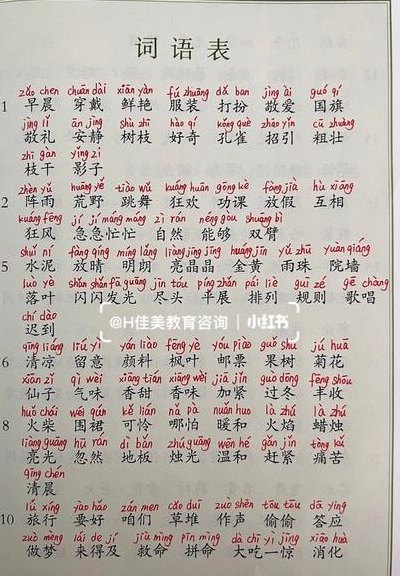 词语表
zǎo chen chuān dài xiān yàn fú zhuāng dǎ ban jìng ài guó qí
1 早晨 穿戴 鲜艳 服装 打扮 敬爱 国旗
jìng lǐ ān jìng shù zhī hào qí kǒng què zhāo yǐn cū zhuàng
敬礼 安静 树枝 好奇 孔雀 招引 粗壮
zhī gàn yǐng zi
枝干 影子
zhèn yǔ huāng yě tiào wǔ kuáng huān gōng kè fàng jià hù xiāng
2 阵雨 荒野 跳舞 狂欢 功课 放假 互相
kuáng fēng jí jí máng máng zì rán néng gòu shuāng bì
狂风 急急忙忙 自然 能够 双臂
shuǐ ní fàng qíng míng lǎng liàng jīng jīng huáng jīn yǔ zhū yuàn qiáng
5 水泥 放晴 明朗 亮晶晶 金黄 雨珠 院墙
luò yè shǎn shǎn fā guāng jìn tóu píng zhǎn pái liè guī zé gē chàng
落叶 闪闪发光 尽头 平展 排列 规则 歌唱
chí dào
迟到
@H佳美教育咨询 小红书
qīng liáng liú yì yán liào fēng yè yóu piào guǒ shù jú huā
6 清凉 留意 颜料 枫叶 邮票 果树 菊花
xiān zǐ qì wèi xiāng tián xiāng wèi jiā jǐn guò dōng fēng shōu
仙子 气味 香甜 香味 加紧 过冬 丰收
huǒ chái wéi qún kě lián nǎ pà nuǎn huo là zhú là zhú
8 火柴 围裙 可怜 哪怕 暖和 火焰 蜡烛
liàng guāng hū rán dì bǎn zhú guāng wēn hé gǎn jǐn tòng kǔ
亮光 忽然 地板 烛光 温和 赶紧 痛苦
qīng chén
清晨
lǚ xíng yào hǎo zán men cǎo duī zuò shēng tōu tōu dā ying
10 旅行 要好 咱们 草堆 作声 偷偷 答应
zuò mèng lái de jí jiù mìng pīn mìng dà chī yì jīng xiāo huà
做梦 来得及 救命 拼命 大吃一惊 消化